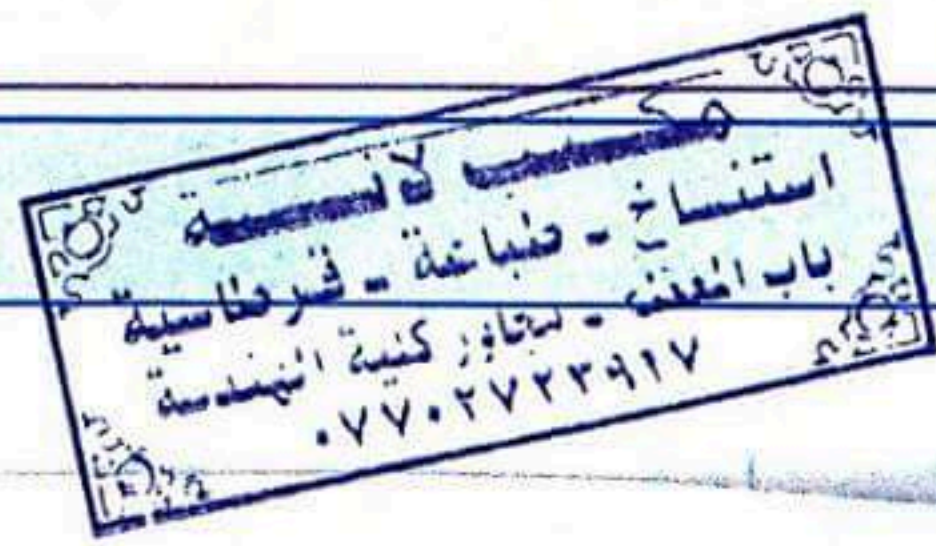 مكتب لانـــــة
استنساخ - طباعة - قرطاسية
باب المعظم - مجاور كلية الهندسة
٠٧٧٠٢٧٢٣٩١٧